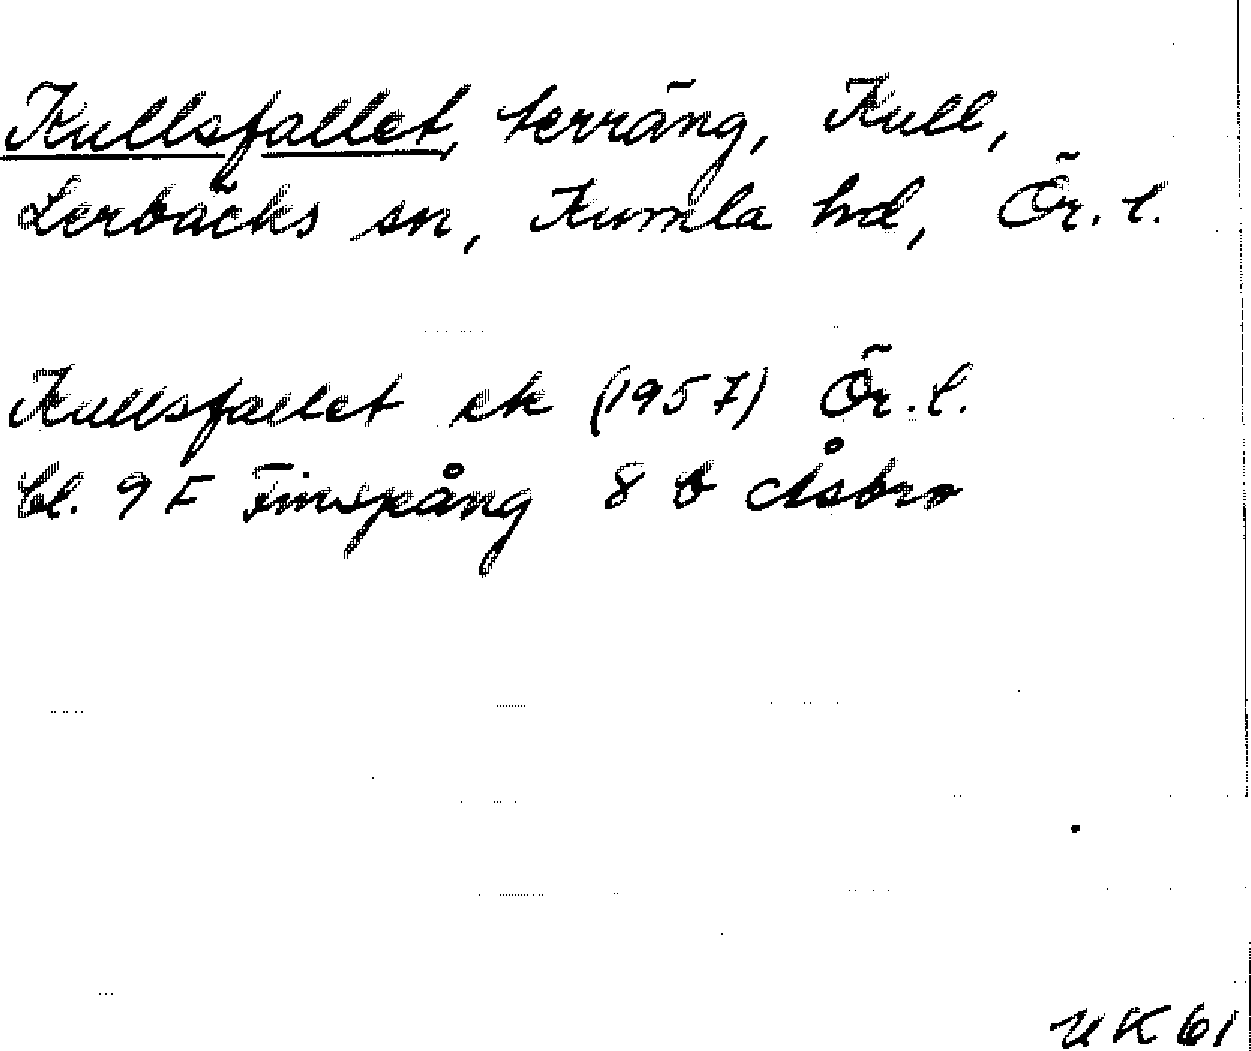 Kullsfallet, terräng, Kull,
Lerbäcks sn, Kumla hd, Ör. l.
Kullsfallet ek (1957) Ör. l.
bl. 9 F Finspång 8 b Åsbro
UK 61